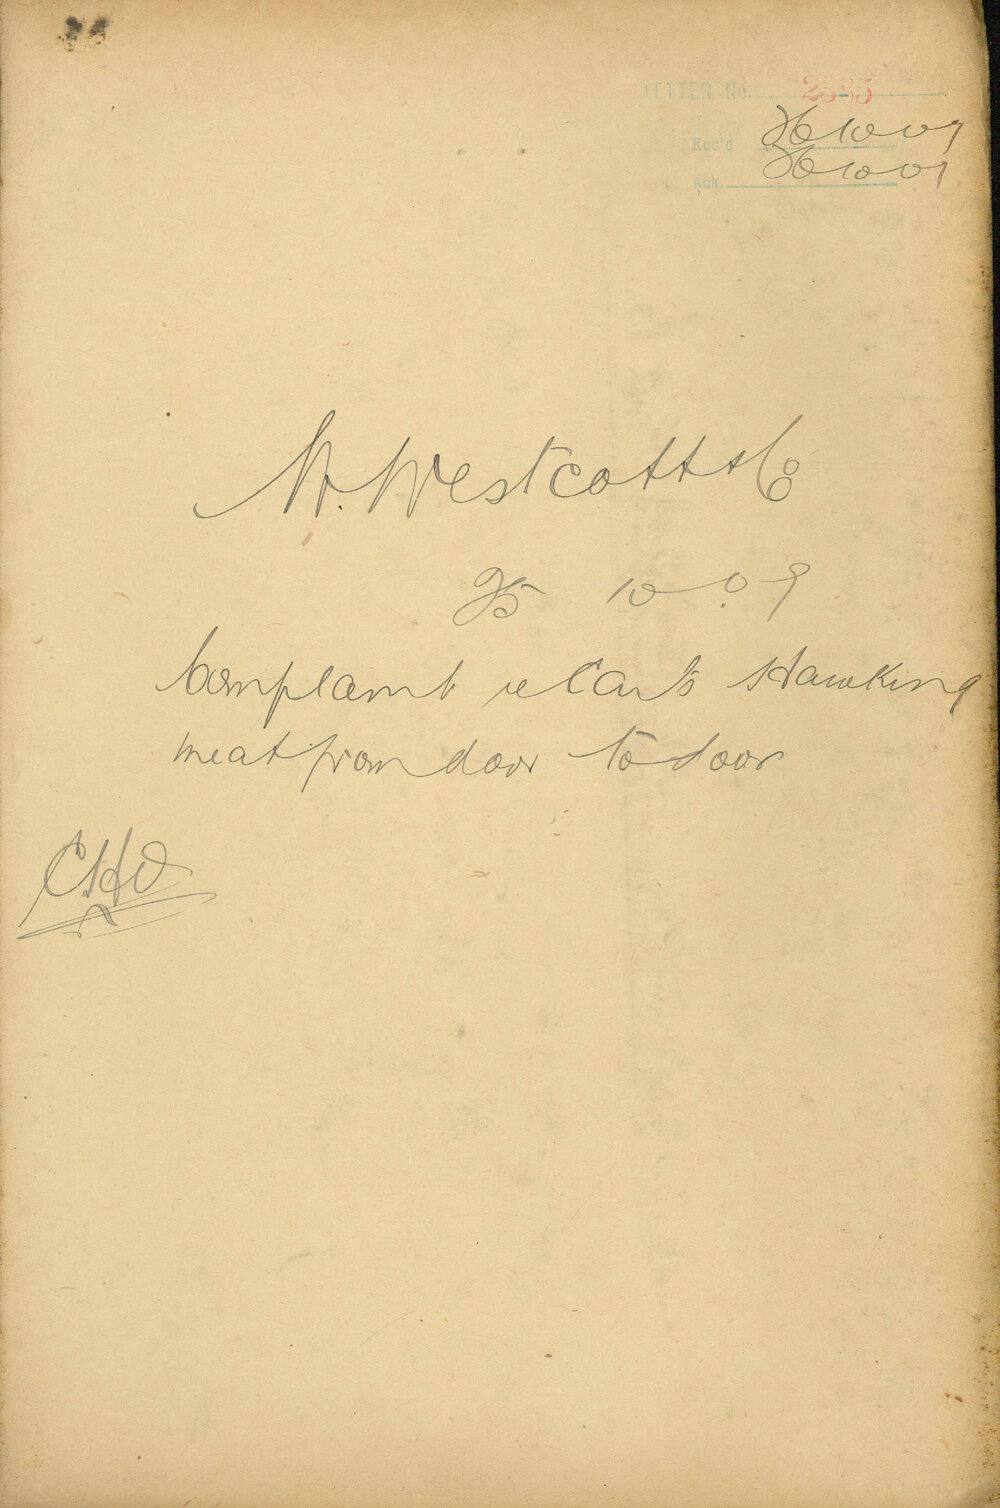 LETTER No. 2695
Rec'd 26 10 09
Ack. 26 10 09
W. Westcott & Co
25 10 . 09
Complaint re Carts Hawking
meat from door to door
CHO